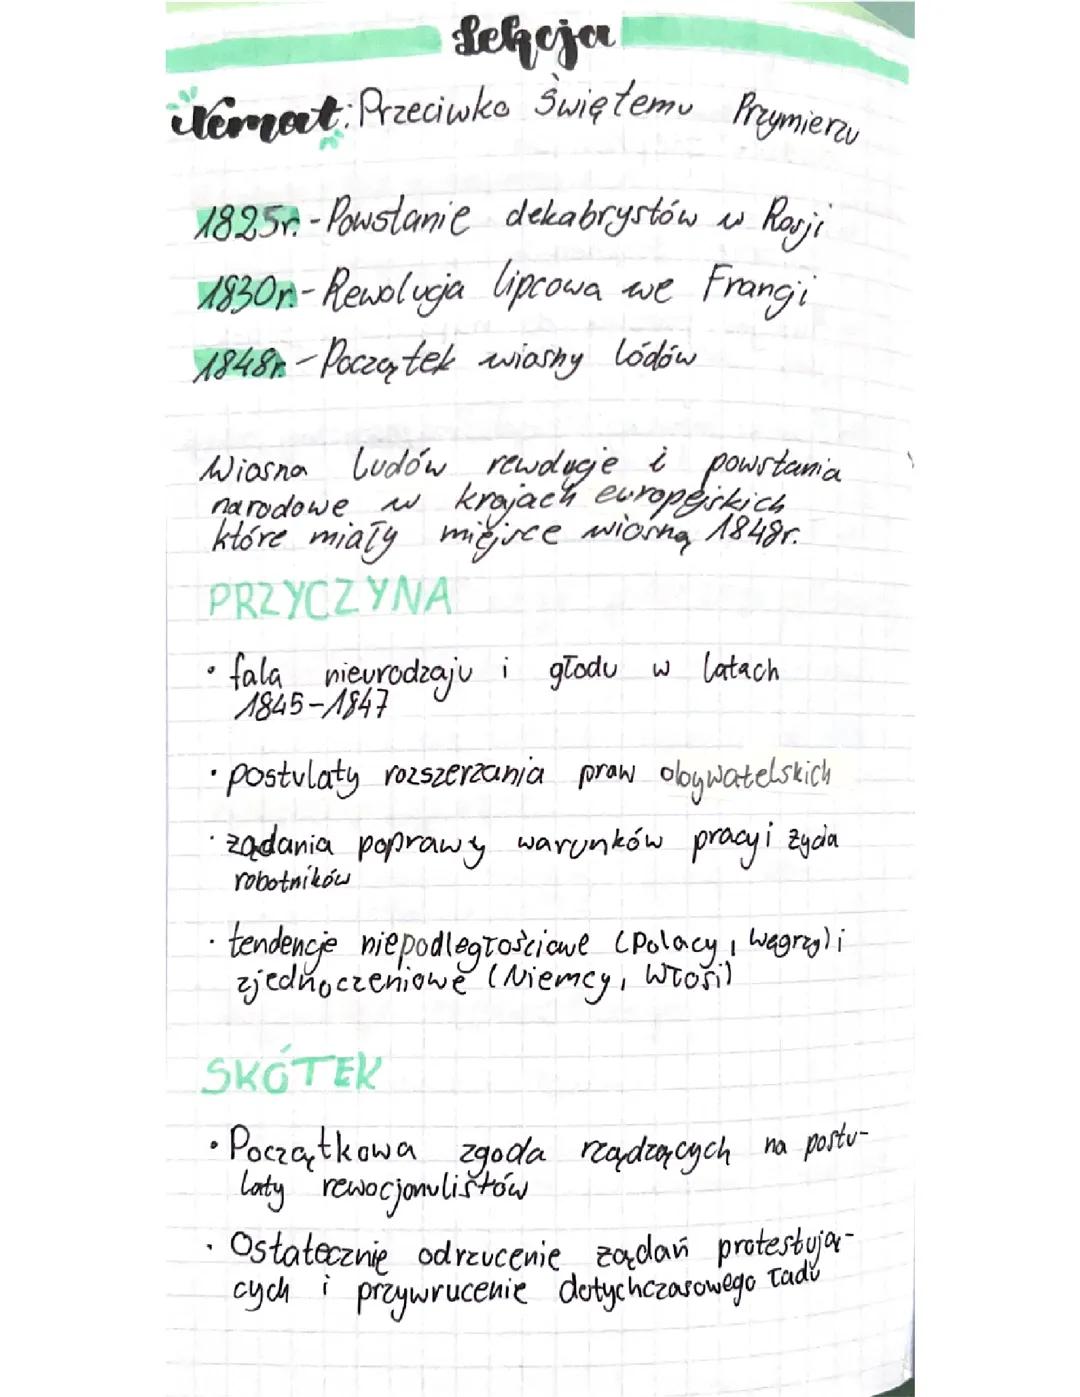 Lekcja
Temat: Przeciwko Świętemu Przymierzu
1825r. - Powstanie dekabrystów w Rosji
1830r. - Rewolucja lipcowa we Francji
1848r. - Początek wiosny lódów
Wiosna Ludów rewolucje i powstania
narodowe w krajach europejskich
które miały miejsce wiosną 1848r.
PRZYCZYNA
• fala nieurodzaju i głodu w latach
1845-1847
• postulaty rozszerzania praw obywatelskich
• ządania poprawy warunków pracy i życia
robotników
• tendencje niepodległościowe (Polacy, Węgrzy) i
zjednoczeniowe (Niemcy, Włosi)
SKÓTEK
• Początkowa zgoda rządzących na postu-
laty rewocjonulistów
• Ostatecznię odrzucenie ządań protestują-
cych i przywrucenie dotychczasowego ładu